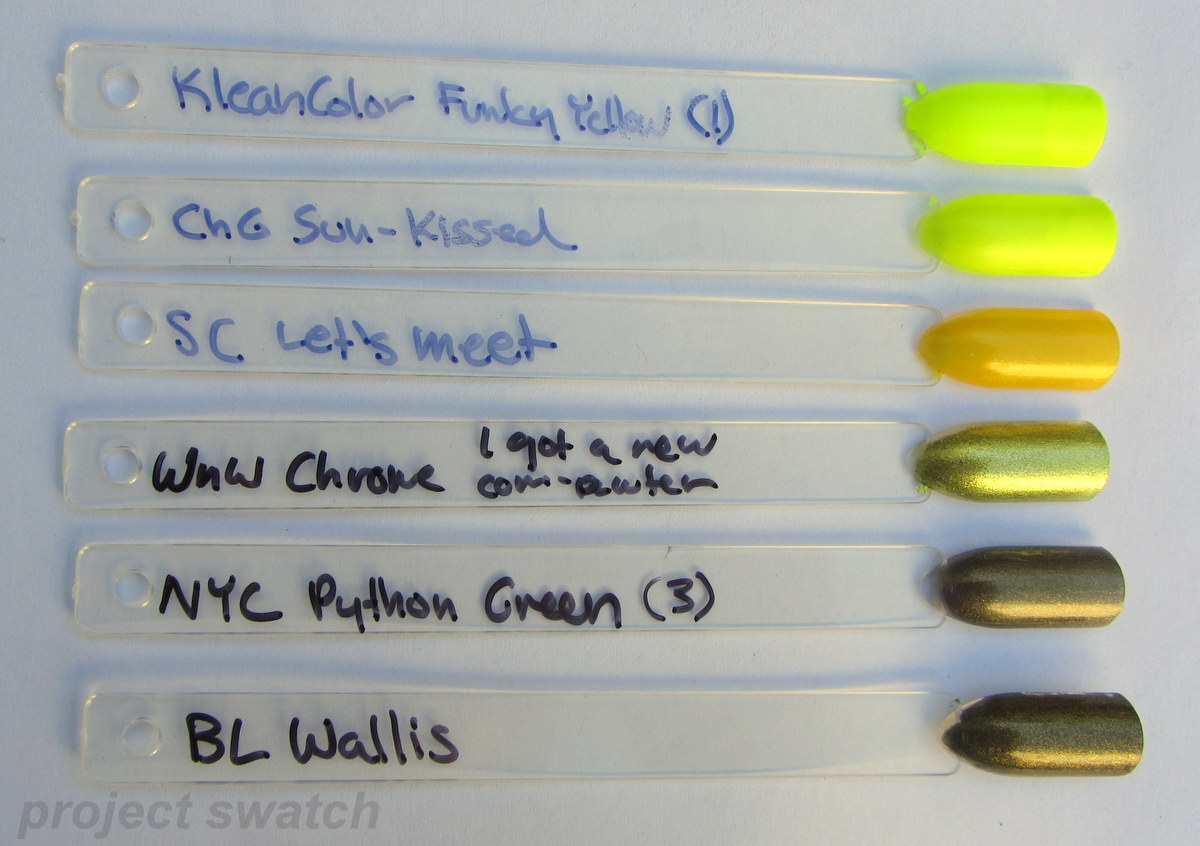 KleanColor Funky Yellow (1)
ChG Sun-Kissed
SC Let's meet
WnW Chrome
I got a new
com-pewter
NYC Python Green (3)
BL Wallis
project swatch